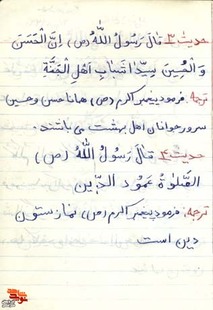 حدیث ۳ قَالَ رَسُولُ اللّٰهُ (ص) إِنَّ الْحَسَنَ
وَ الْحُسِینَ سِیِّدَا شَبَابِ اَهْلِ الْجَنَّةِ
ترجمه. فرمود پیغمبر اکرم (ص) همانا حسن و حسین
سرور جوانان اهل بهشت می باشند.
حدیث ۴ قَالَ رَسُولُ اللّٰهُ (ص)
الصَّلوٰةُ عَمُودُ الدّینِ
ترجمه: فرمود پیغمبر اکرم (ص) نماز ستون
دین است